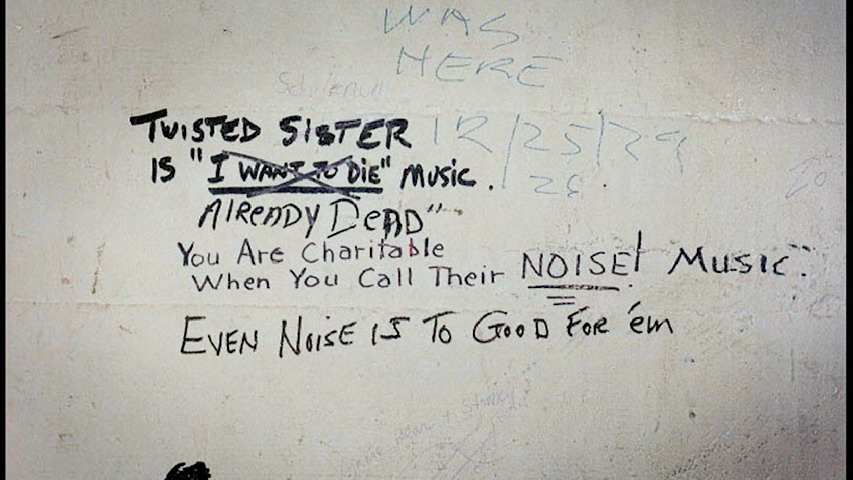 WAS
HERE
TWISTED SISTER
12/25/79
IS "I WANT TO DIE" MUSIC.
26
ALREADY DEAD"
You Are Charitable
When You Call Their NOISE! MUSIC".
EVEN NOISE IS TO GOOD FOR 'em